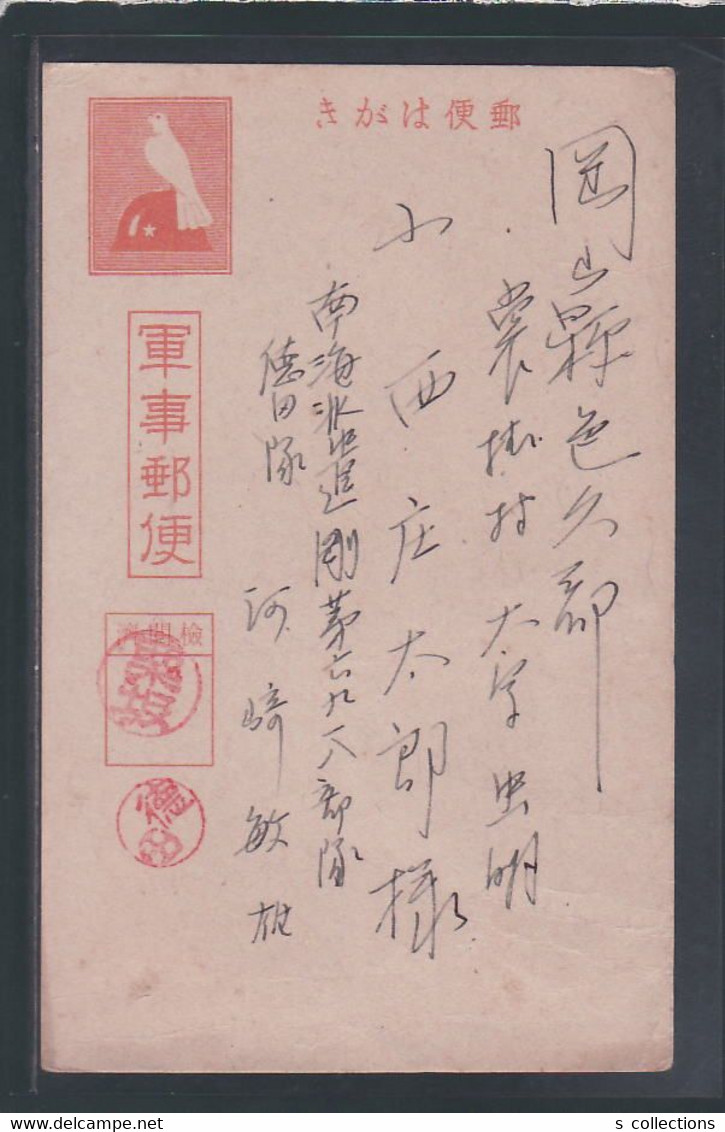 郵便はがき
岡山縣邑久郡
裳掛村大字虫明
小西庄太郎様
南海派遣剛第六九一八部隊
德田隊
河崎敏雄
軍事郵便
檢閲濟
德田
s collections